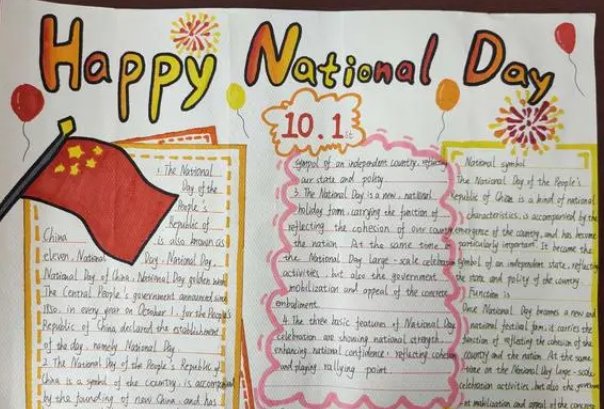 Happy National Day
10.1st
1. The National
Day of the
People's
Republic of
China is also known as
eleven, National Day, National Day,
National Day of China, National Day golden week
The Central People's government announced wind
1950, in every year on October 1, for the People's
Republic of China declared the establishment
of the day, namely National Day
2. The National Day of the People's Republic of
China is a symbol of the country, is accompanied
by the founding of new China, and has
symbol of an independent country, reflecting
our state and polity
3. The National Day is a new, national
holiday form, carrying the function of
reflecting the cohesion of our country
the nation. At the same time
the National Day large-scale celebration
activities, but also the government
mobilization and appeal of the concrete
embodiment.
4. The three basic features of National Day
celebration are showing national strength,
enhancing national confidence, reflecting cohesion
and playing rallying point
National symbol
The National Day of the People's
Republic of China is a kind of national
characteristics, is accompanied by the
emergence of the country, and has become
particularly important. It became the
symbol of an independent state, reflecting
the state and polity of the country.
Function is
Once National Day becomes a new and
national festival form, it carries the
function of reflecting the cohesion of the
country and the nation. At the same
time on the National Day large-scale
celebration activities, but also the government
mobilization and appeal of the concrete